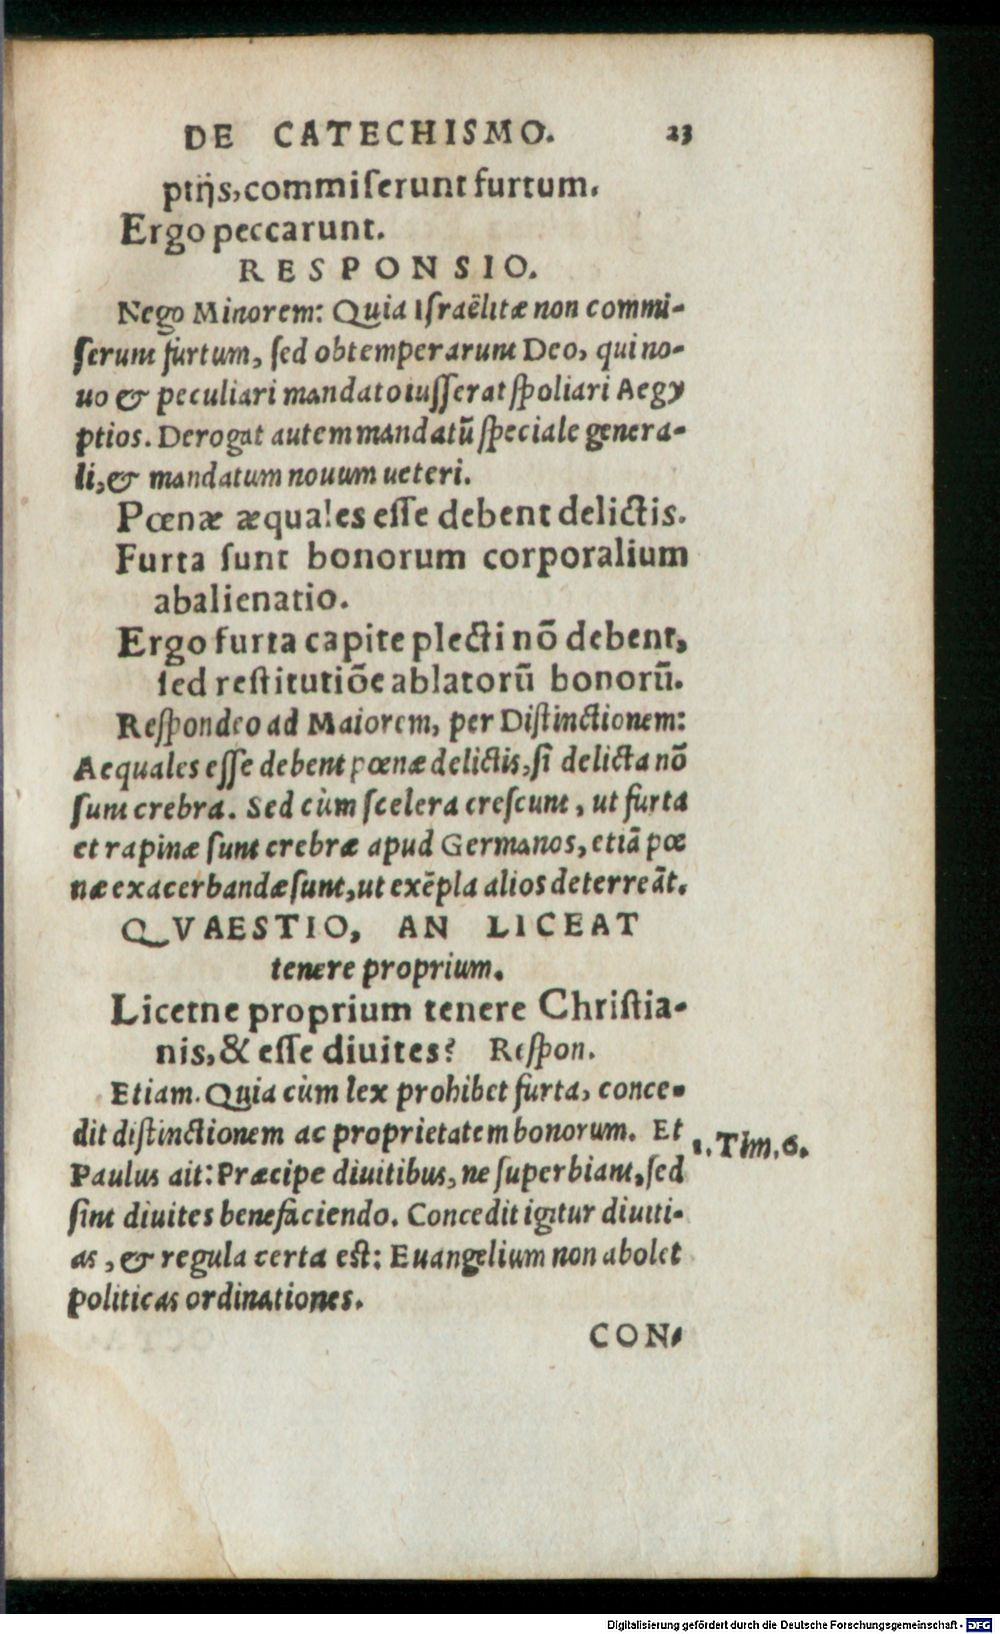 DE CATECHISMO. 23
ptijs, commiſerunt furtum.
Ergo peccarunt.
RESPONSIO.
Nego Minorem: Quia Iſraëlitæ non commi-
ſerunt furtum, ſed obtemperarunt Deo, qui no-
uo & peculiari mandato iuſſerat ſpoliari Aegy
ptios. Derogat autem mandatū ſpeciale genera-
li, & mandatum nouum ueteri.
Pœnæ æquales eſſe debent delictis.
Furta ſunt bonorum corporalium
abalienatio.
Ergo furta capite plecti nō debent,
ſed reſtitutiōe ablatorū bonorū.
Reſpondeo ad Maiorem, per Diſtinctionem:
Aequales eſſe debent pœnæ delictis, ſi delicta nō
ſunt crebra. Sed cùm ſcelera creſcunt, ut furta
et rapinæ ſunt crebræ apud Germanos, etiā pœ
næ exacerbandæ ſunt, ut exēpla alios deterreāt.
QVAESTIO, AN LICEAT
tenere proprium.
Licetne proprium tenere Chriſtia-
nis, & eſſe diuites? Reſpon.
Etiam. Quia cùm lex prohibet furta, conce-
dit diſtinctionem ac proprietatem bonorum. Et
1. Tim. 6.
Paulus ait: Præcipe diuitibus, ne ſuperbiant, ſed
ſint diuites benefaciendo. Concedit igitur diuiti-
as, & regula certa eſt: Euangelium non abolet
politicas ordinationes.
CON-
Digitalisierung gefördert durch die Deutsche Forschungsgemeinschaft - DFG